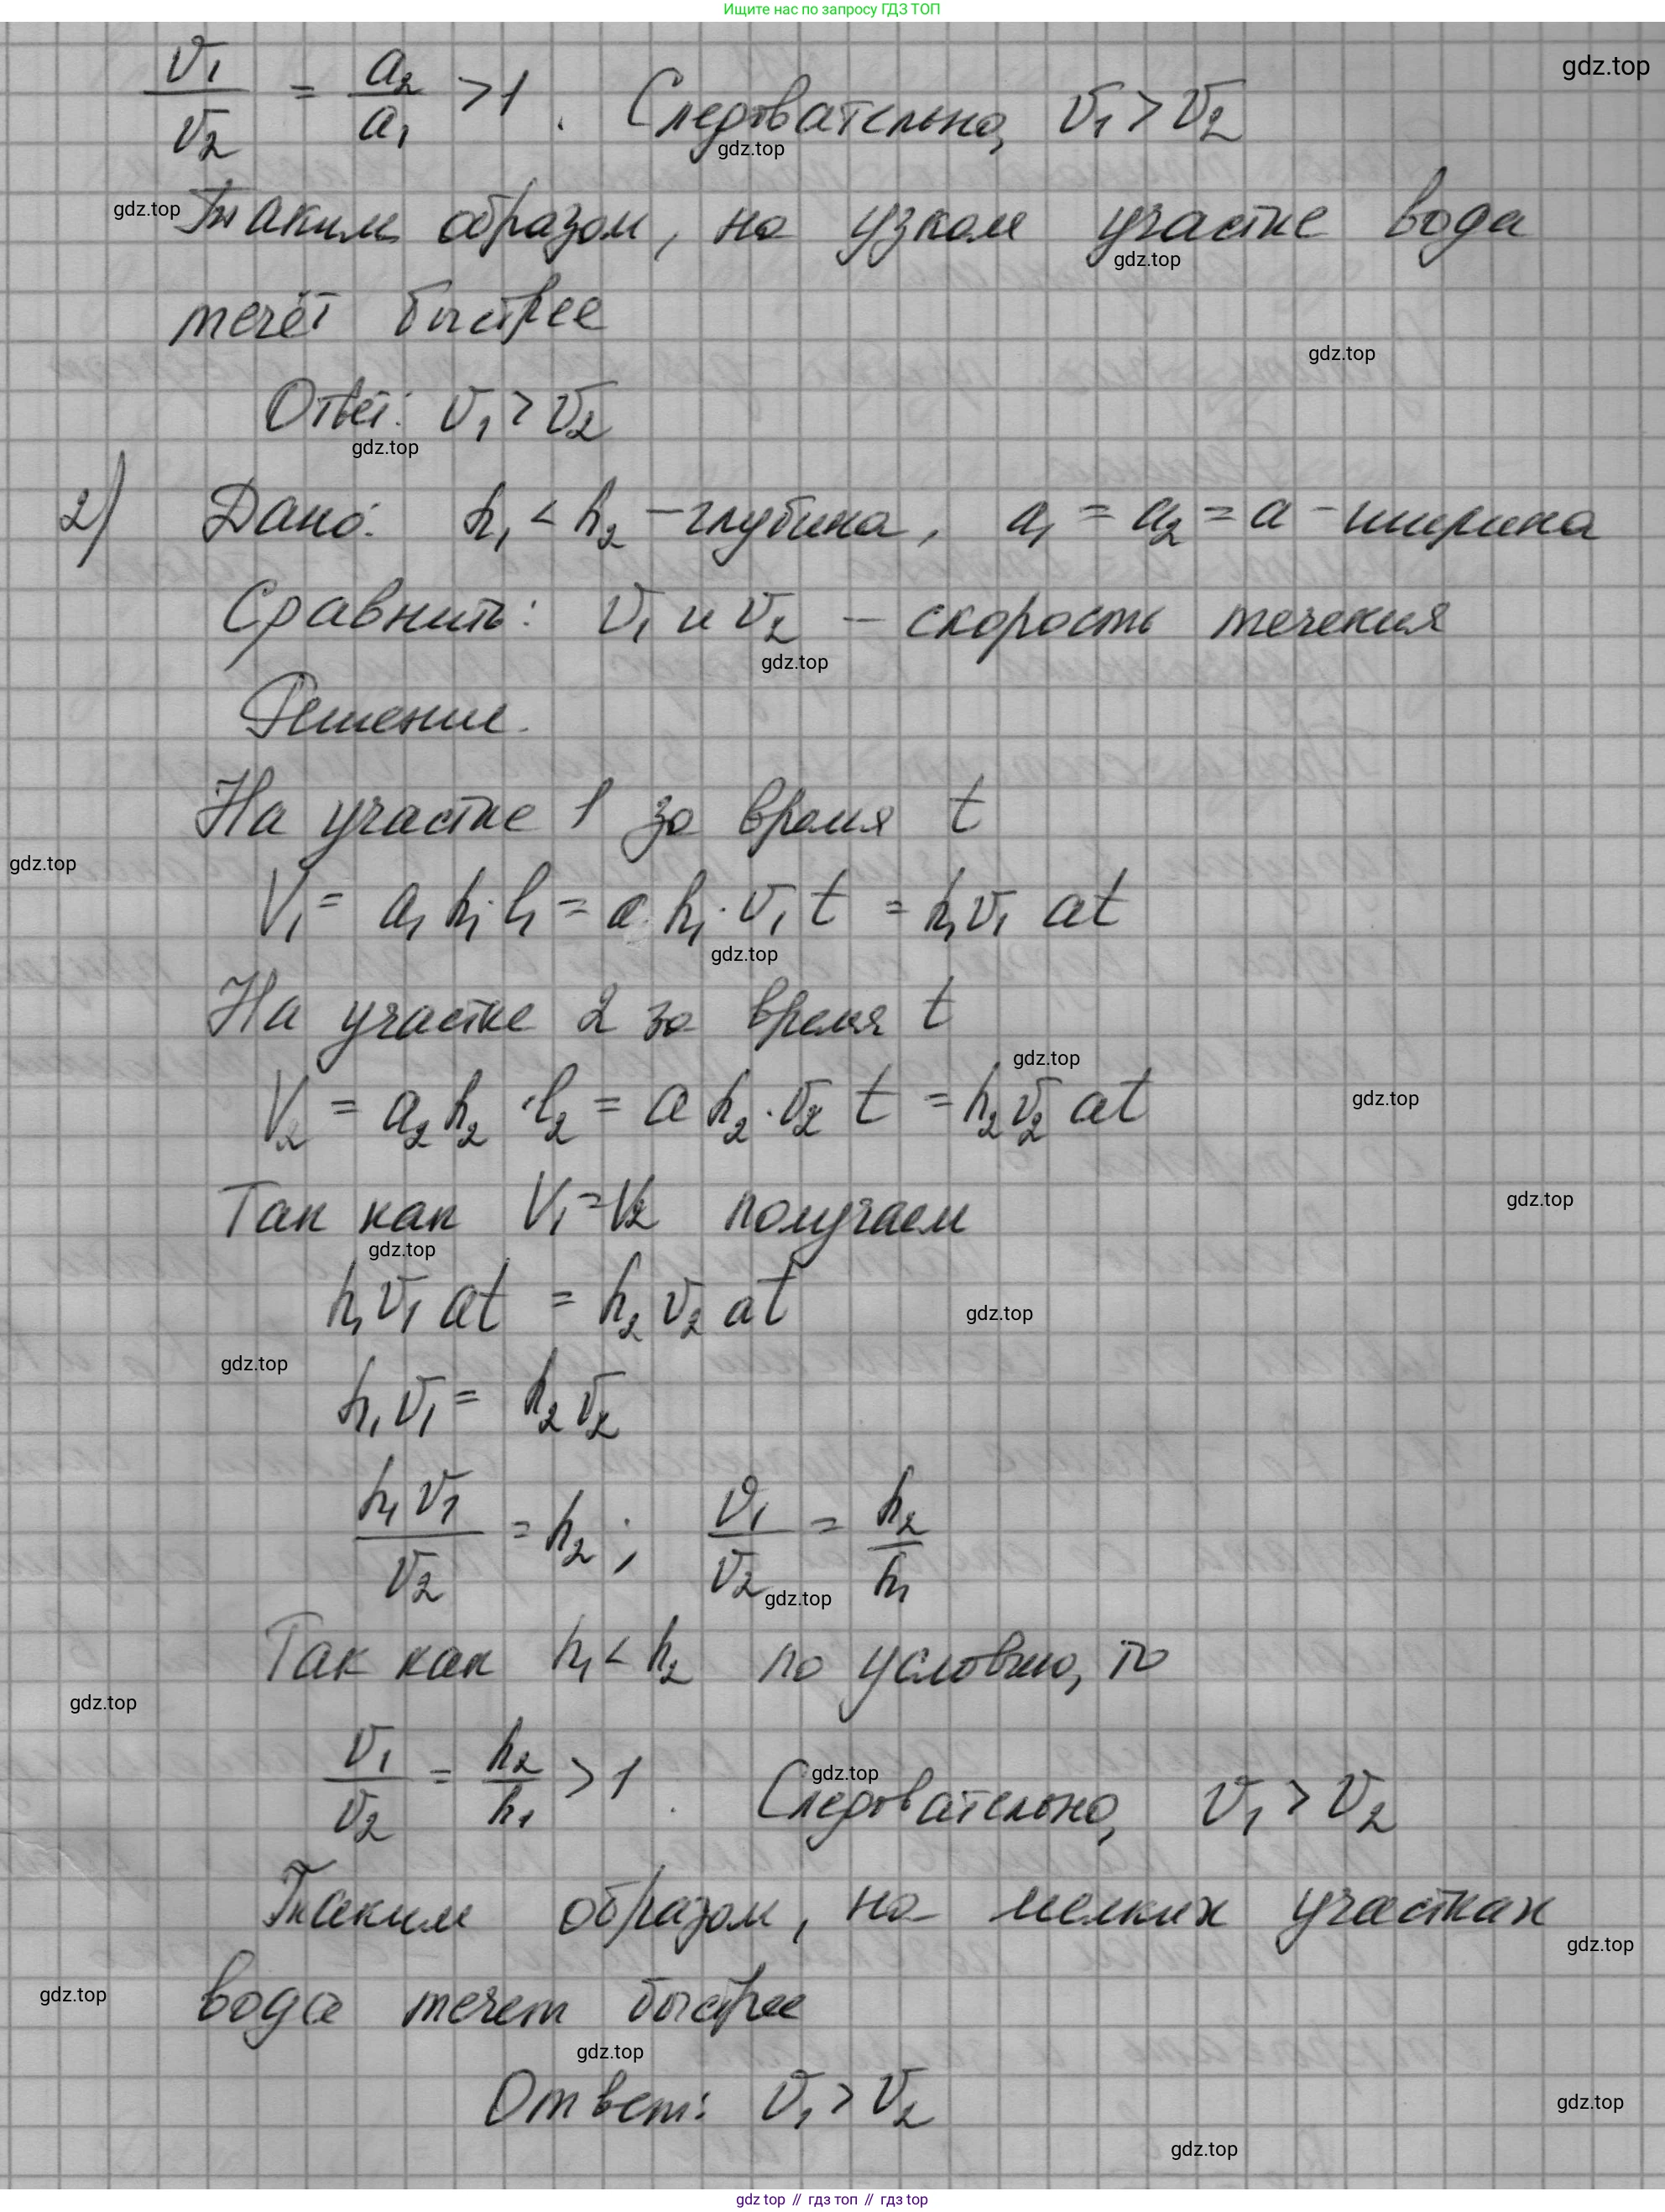 Ищите нас по запросу ГДЗ ТОП
gdz.top
v₁/v₂ = a₂/a₁ > 1. Следовательно, v₁ > v₂
gdz.top
gdz.top
Таким образом, на узком участке вода
gdz.top
течёт быстрее
gdz.top
Ответ: v₁ > v₂
gdz.top
2) Дано: h₁ < h₂ – глубина, a₁ = a₂ = a – ширина
Сравнить: v₁ и v₂ – скорость течения
gdz.top
Решение.
На участке 1 за время t
gdz.top
V₁ = a₁ h₁ · l₁ = a · h₁ · v₁ t = h₁ v₁ at
gdz.top
На участке 2 за время t
gdz.top
V₂ = a₂ h₂ · l₂ = a h₂ · v₂ t = h₂ v₂ at
gdz.top
Так как V₁ = V₂ получаем
gdz.top
gdz.top
h₁ v₁ at = h₂ v₂ at
gdz.top
gdz.top
h₁ v₁ = h₂ v₂
h₁ v₁/v₂ = h₂; v₁/v₂ = h₂/h₁
gdz.top
Так как h₁ < h₂ по условию, то
gdz.top
v₁/v₂ = h₂/h₁ > 1. Следовательно, v₁ > v₂
gdz.top
Таким образом, на мелких участках
gdz.top
gdz.top
вода течет быстрее
gdz.top
Ответ: v₁ > v₂
gdz.top
gdz.top
gdz top // гдз топ // гдз top